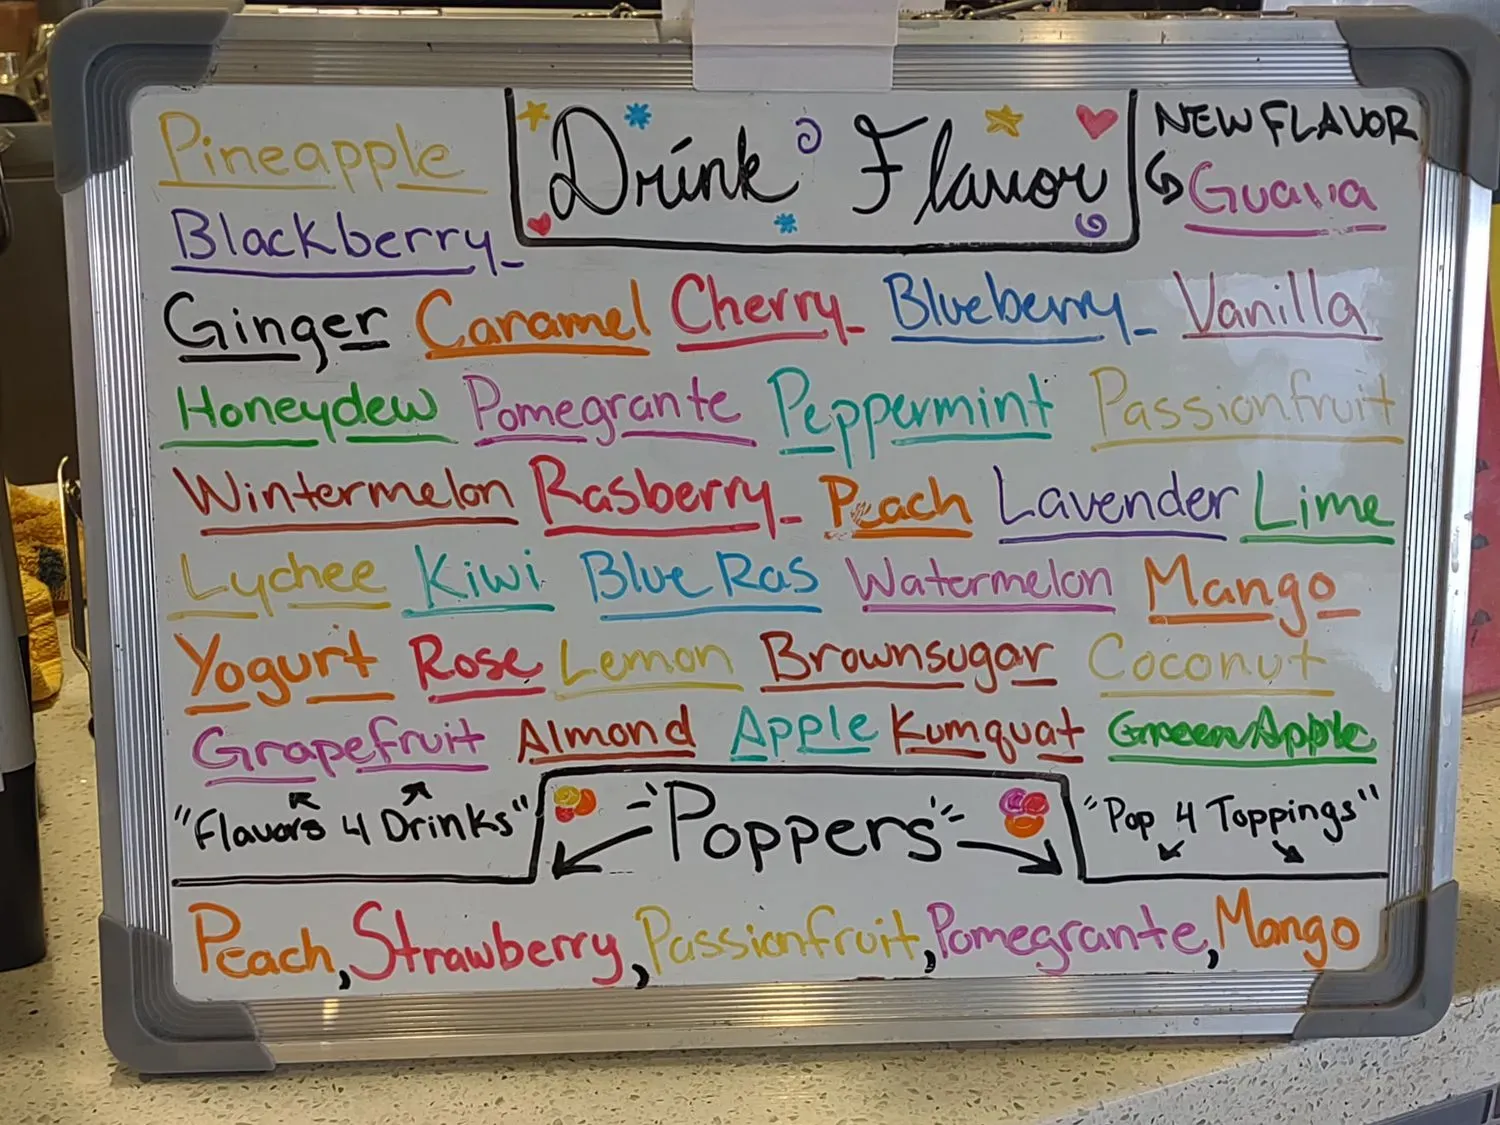 Drink Flavor
Pineapple
NEW FLAVOR
Guava
Blackberry
Ginger Caramel Cherry Blueberry Vanilla
Honeydew Pomegrante Peppermint Passionfruit
Wintermelon Rasberry Peach Lavender Lime
Lychee Kiwi Blue Ras Watermelon Mango
Yogurt Rose Lemon Brownsugar Coconut
Grapefruit Almond Apple Kumquat Green Apple
"Flavors 4 Drinks"
Poppers
"Pop 4 Toppings"
Peach, Strawberry, Passionfruit, Pomegrante, Mango